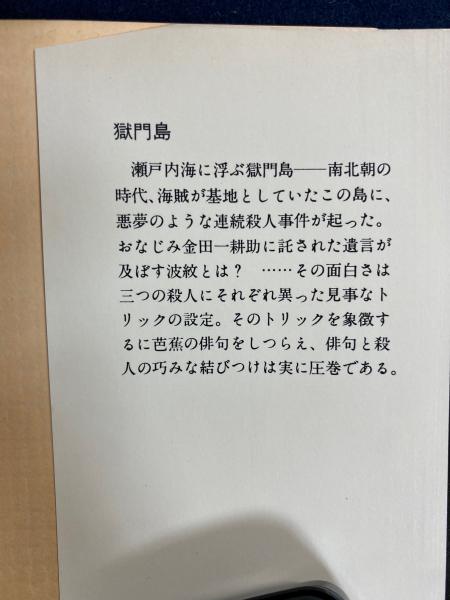 獄門島
瀬戸内海に浮ぶ獄門島――南北朝の
時代、海賊が基地としていたこの島に、
悪夢のような連続殺人事件が起った。
おなじみ金田一耕助に託された遺言が
及ぼす波紋とは？　……その面白さは
三つの殺人にそれぞれ異った見事なト
リックの設定。そのトリックを象徴す
るに芭蕉の俳句をしつらえ、俳句と殺
人の巧みな結びつけは実に圧巻である。